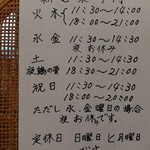 火木 { 11:30~14:30
18:00~21:00
水金 11:30~14:30
夜お休み
土 11:30~14:30
18:30~21:30
祝日 11:30~14:30
18:30~21:00
ただし水、金曜日の場合
夜お休みです。
定休日 日曜日と月曜日
です